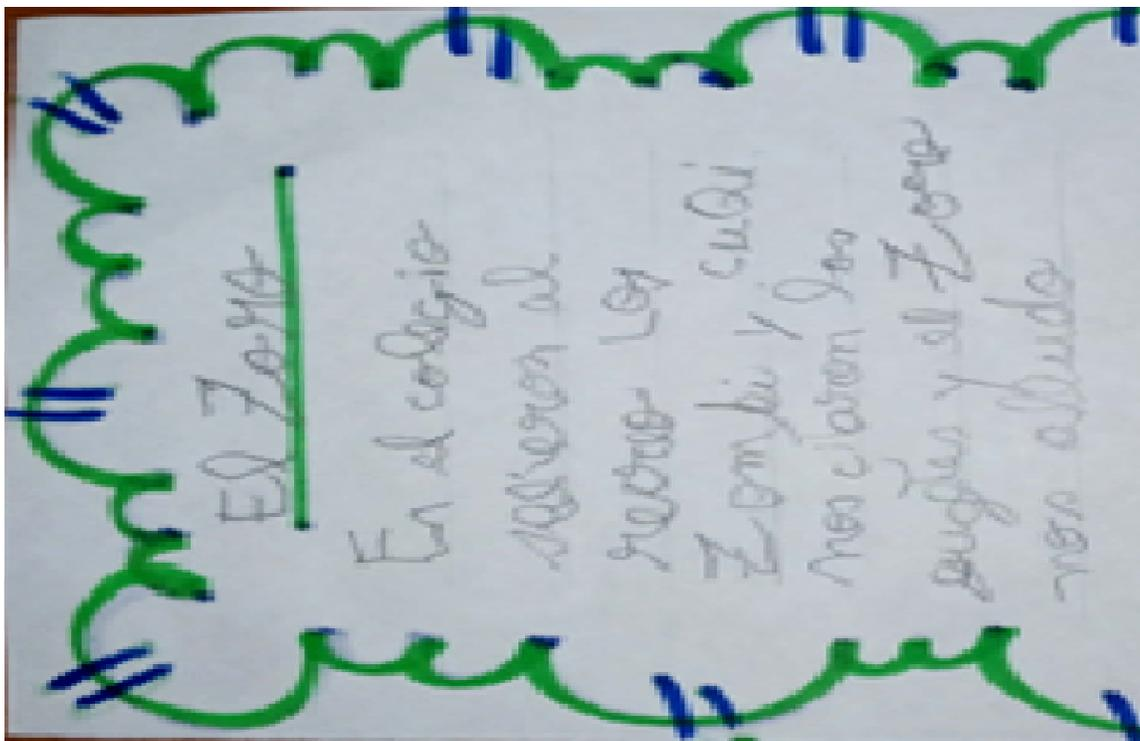 El Zorro
En el colegio
salieron al
recreo Los
Zombi y cuai
nos claron los
y el Zorro
nos alludo